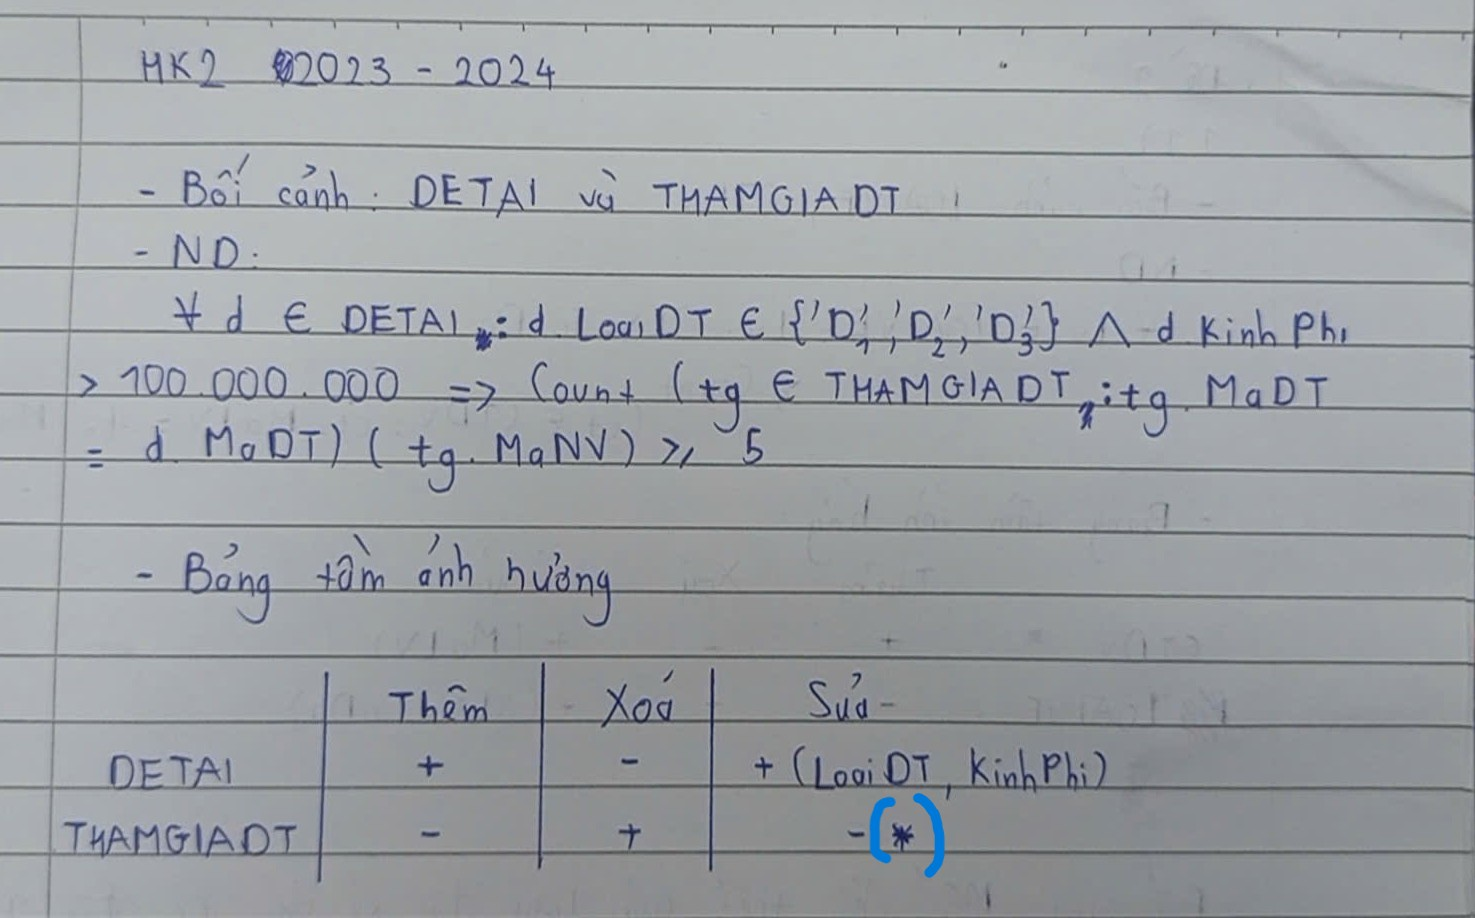 HK2 2023 - 2024
- Bối cảnh: DETAI và THAMGIADT
- ND:
∀ d ∈ DETAI : d. LoaiDT ∈ {'D1', 'D2', 'D3'} ∧ d. KinhPhi
> 100.000.000 => Count (tg ∈ THAMGIADT : tg. MaDT
= d. MaDT) ( tg. MaNV) ≥ 5
- Bảng tầm ảnh hưởng
Thêm Xoá Sửa
DETAI + - + (LoaiDT, KinhPhi)
THAMGIADT - + - (*)